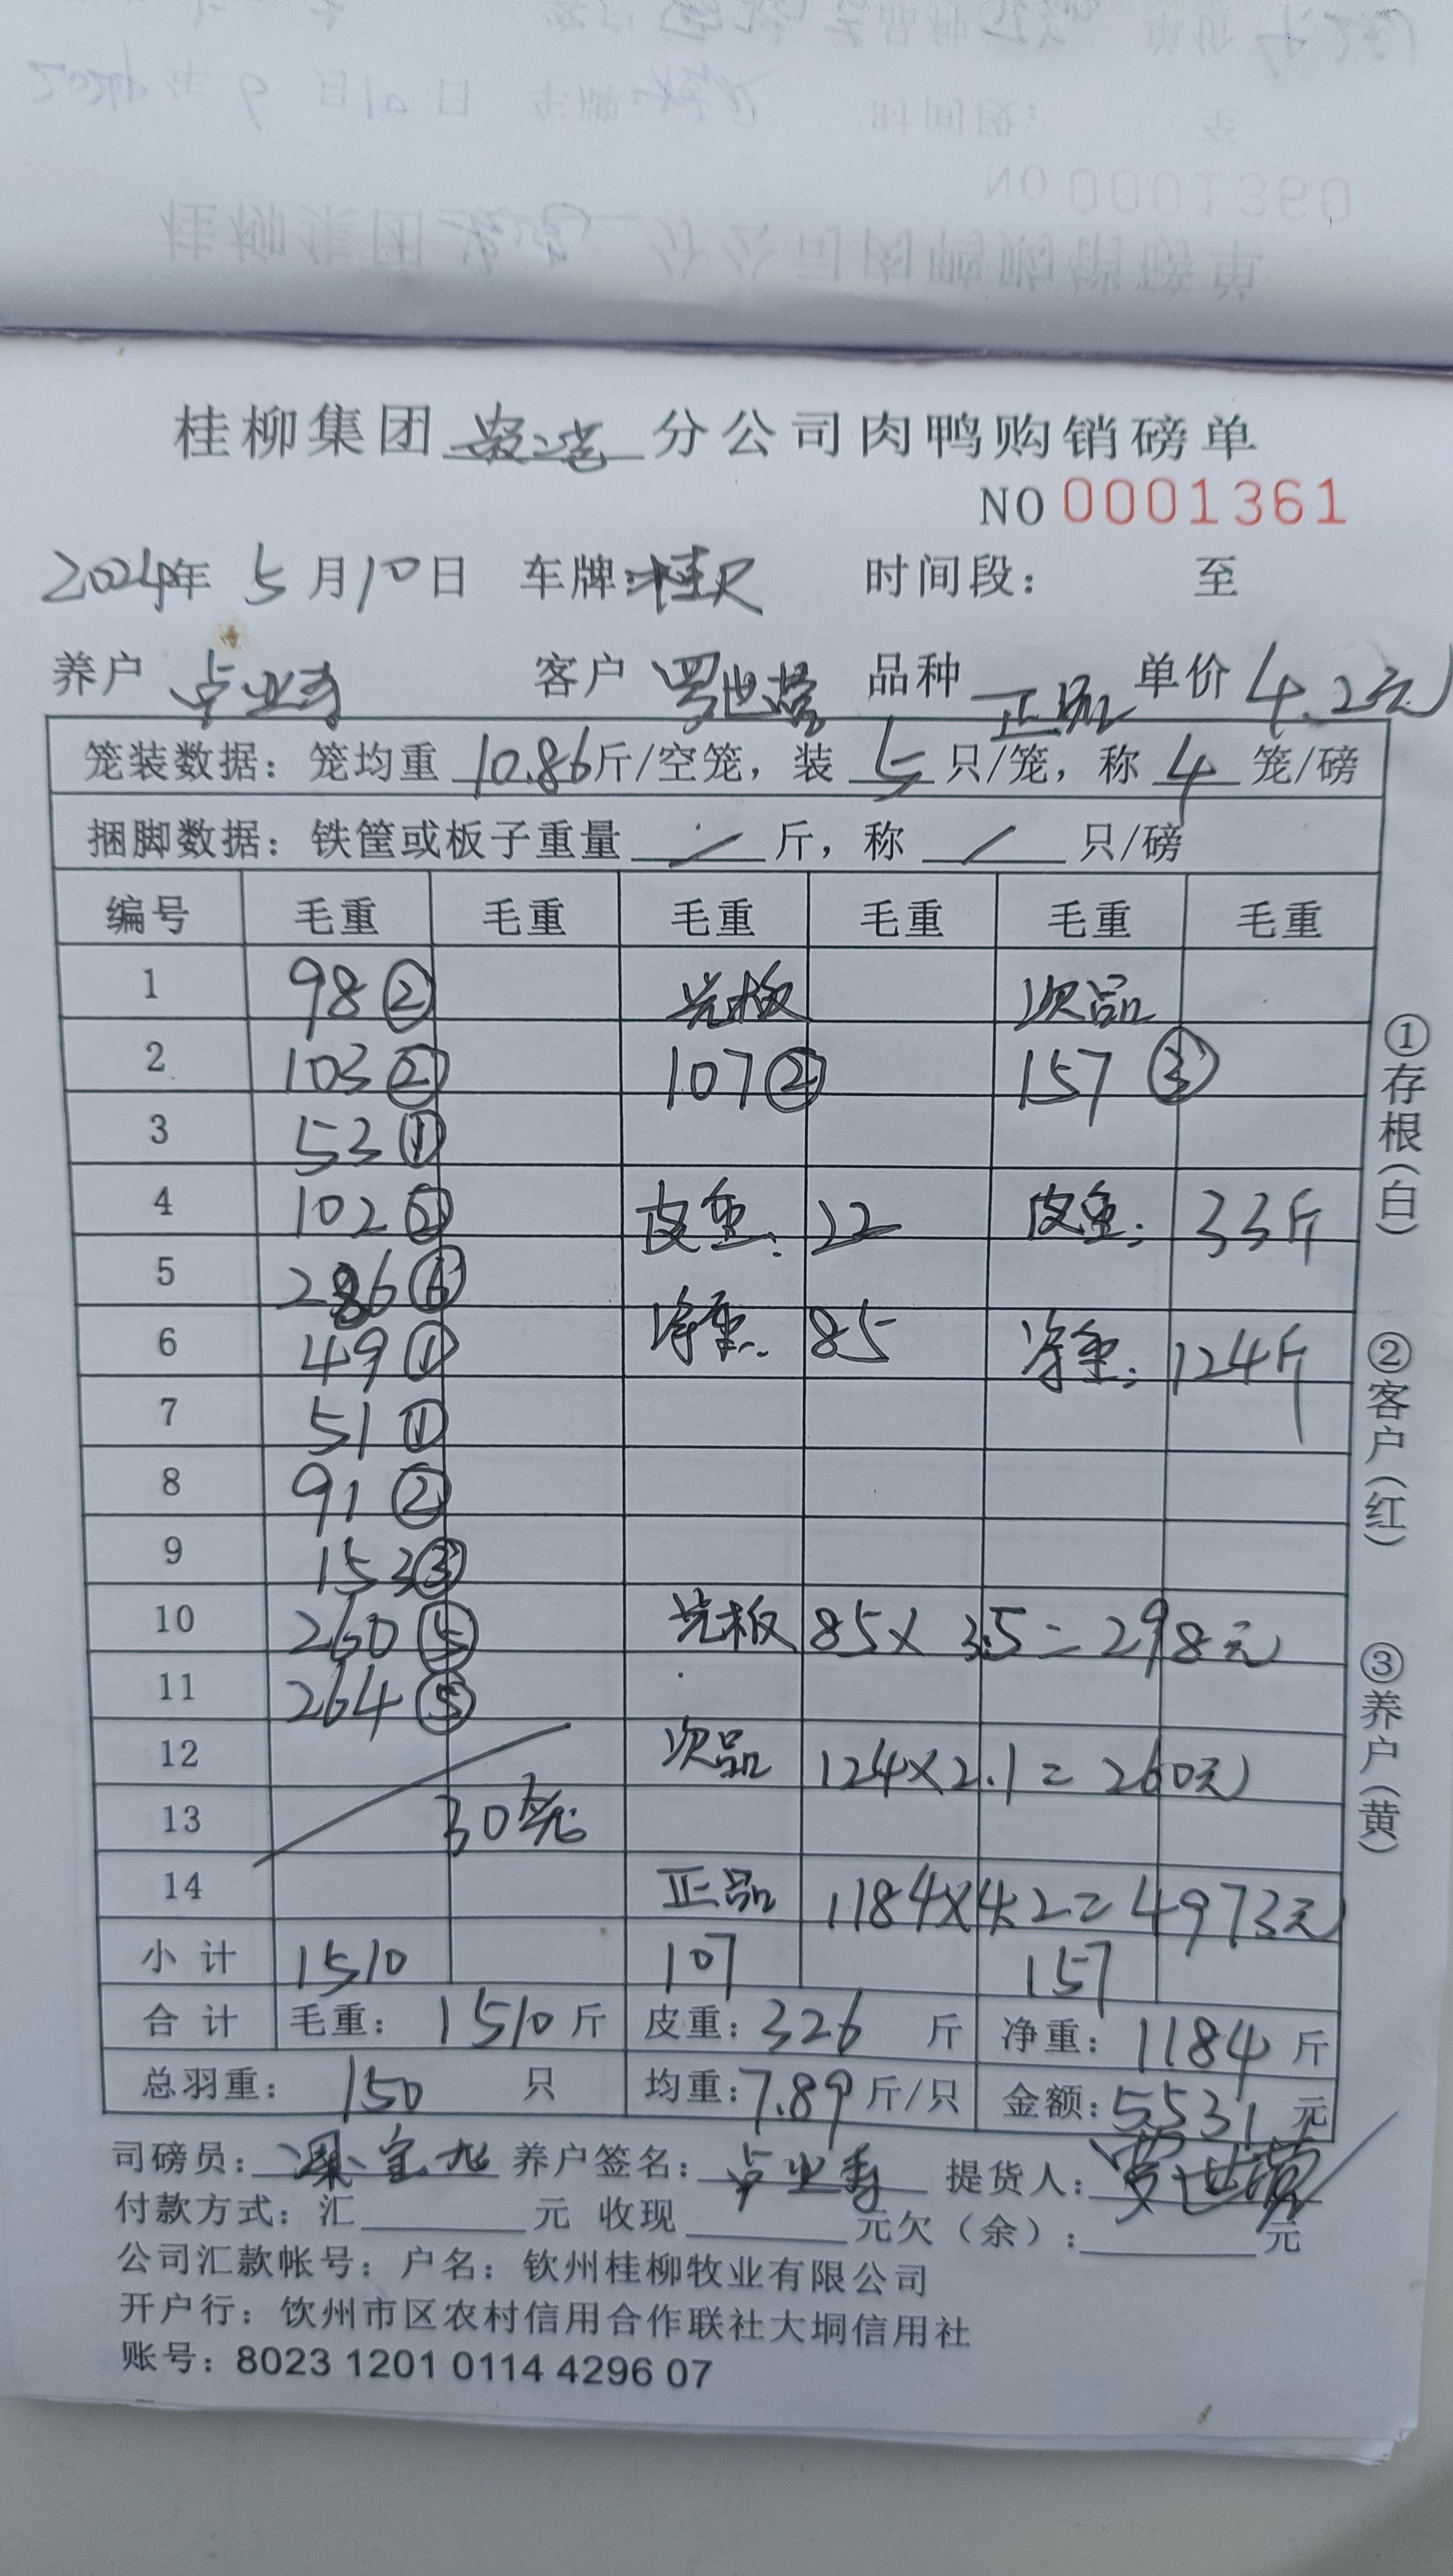 NO 0001360
桂柳集团 分公司肉鸭购销磅单
NO 0001361
2024年 5月10日 车牌: 时间段: 至
养户 卢业秀 客户 罗世营 品种 正品 单价 4.2元
笼装数据: 笼均重 10.86斤/空笼, 装 5 只/笼, 称 4 笼/磅
捆脚数据: 铁筐或板子重量 / 斤, 称 / 只/磅
编号 毛重 毛重 毛重 毛重 毛重 毛重
1 98② 光板 次品
2 103② 107② 157③
3 53①
4 102② 皮重: 22 皮重: 33斤
5 286⑥
6 49① 净重: 85 净重: 124斤
7 51①
8 91②
9 153③
10 260⑤ 光板 85×3.5=298元
11 264⑤
12 次品 124×2.1=260元
13 30笼
14 正品 1184×4.2=4973元
小计 1510 107 157
合计 毛重: 1510斤 皮重: 326 斤 净重: 1184斤
总羽重: 150 只 均重: 7.89斤/只 金额: 5531元
司磅员: 养户签名: 卢业秀 提货人: 罗世营
付款方式: 汇 元 收现 元欠(余): 元
公司汇款帐号: 户名: 钦州桂柳牧业有限公司
开户行: 钦州市区农村信用合作联社大垌信用社
账号: 8023 1201 0114 4296 07
①存根(白)
②客户(红)
③养户(黄)